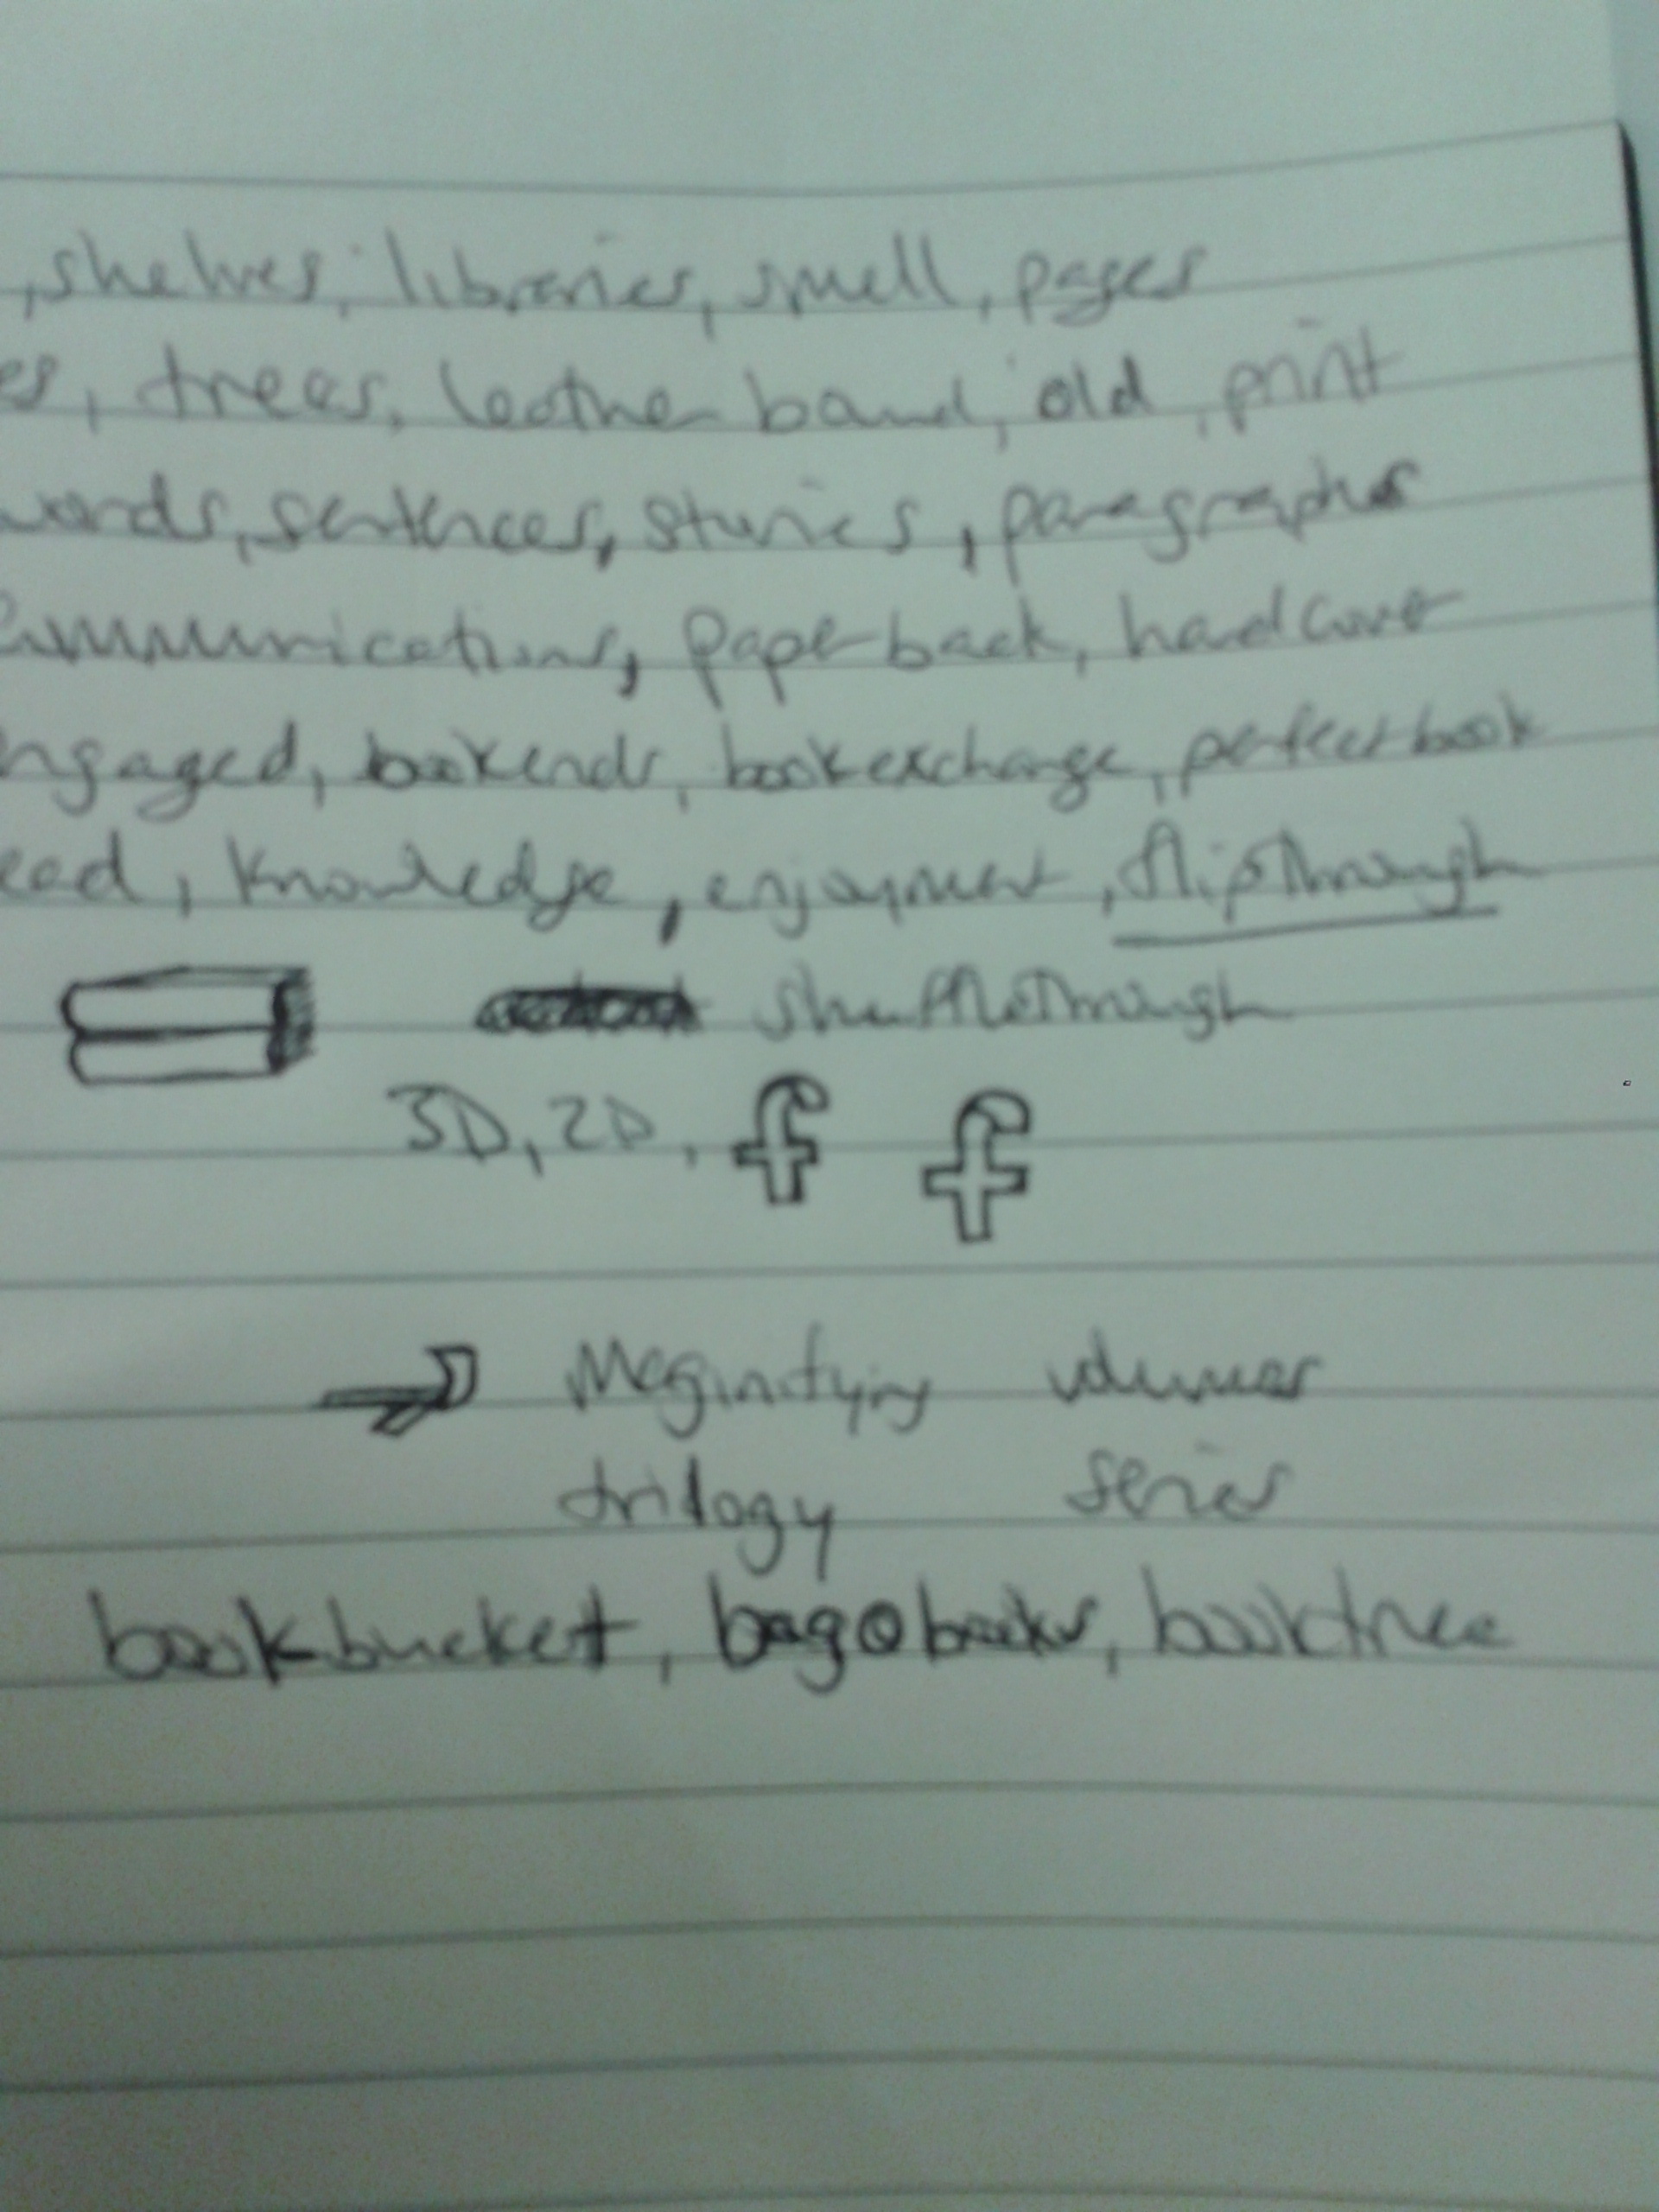 , shelves, libraries, smell, pages
es, trees, leather bound, old, print
words, sentences, stories, paragraphs
ommunications, paperback, hardcover
ngaged, bookends, bookexchange, perfectbook
ead, knowledge, enjoyment, flipthrough
shufflethrough
3D, 2D, f f
Maginifying volumes
trilogy series
bookbucket, bagobooks, booktree